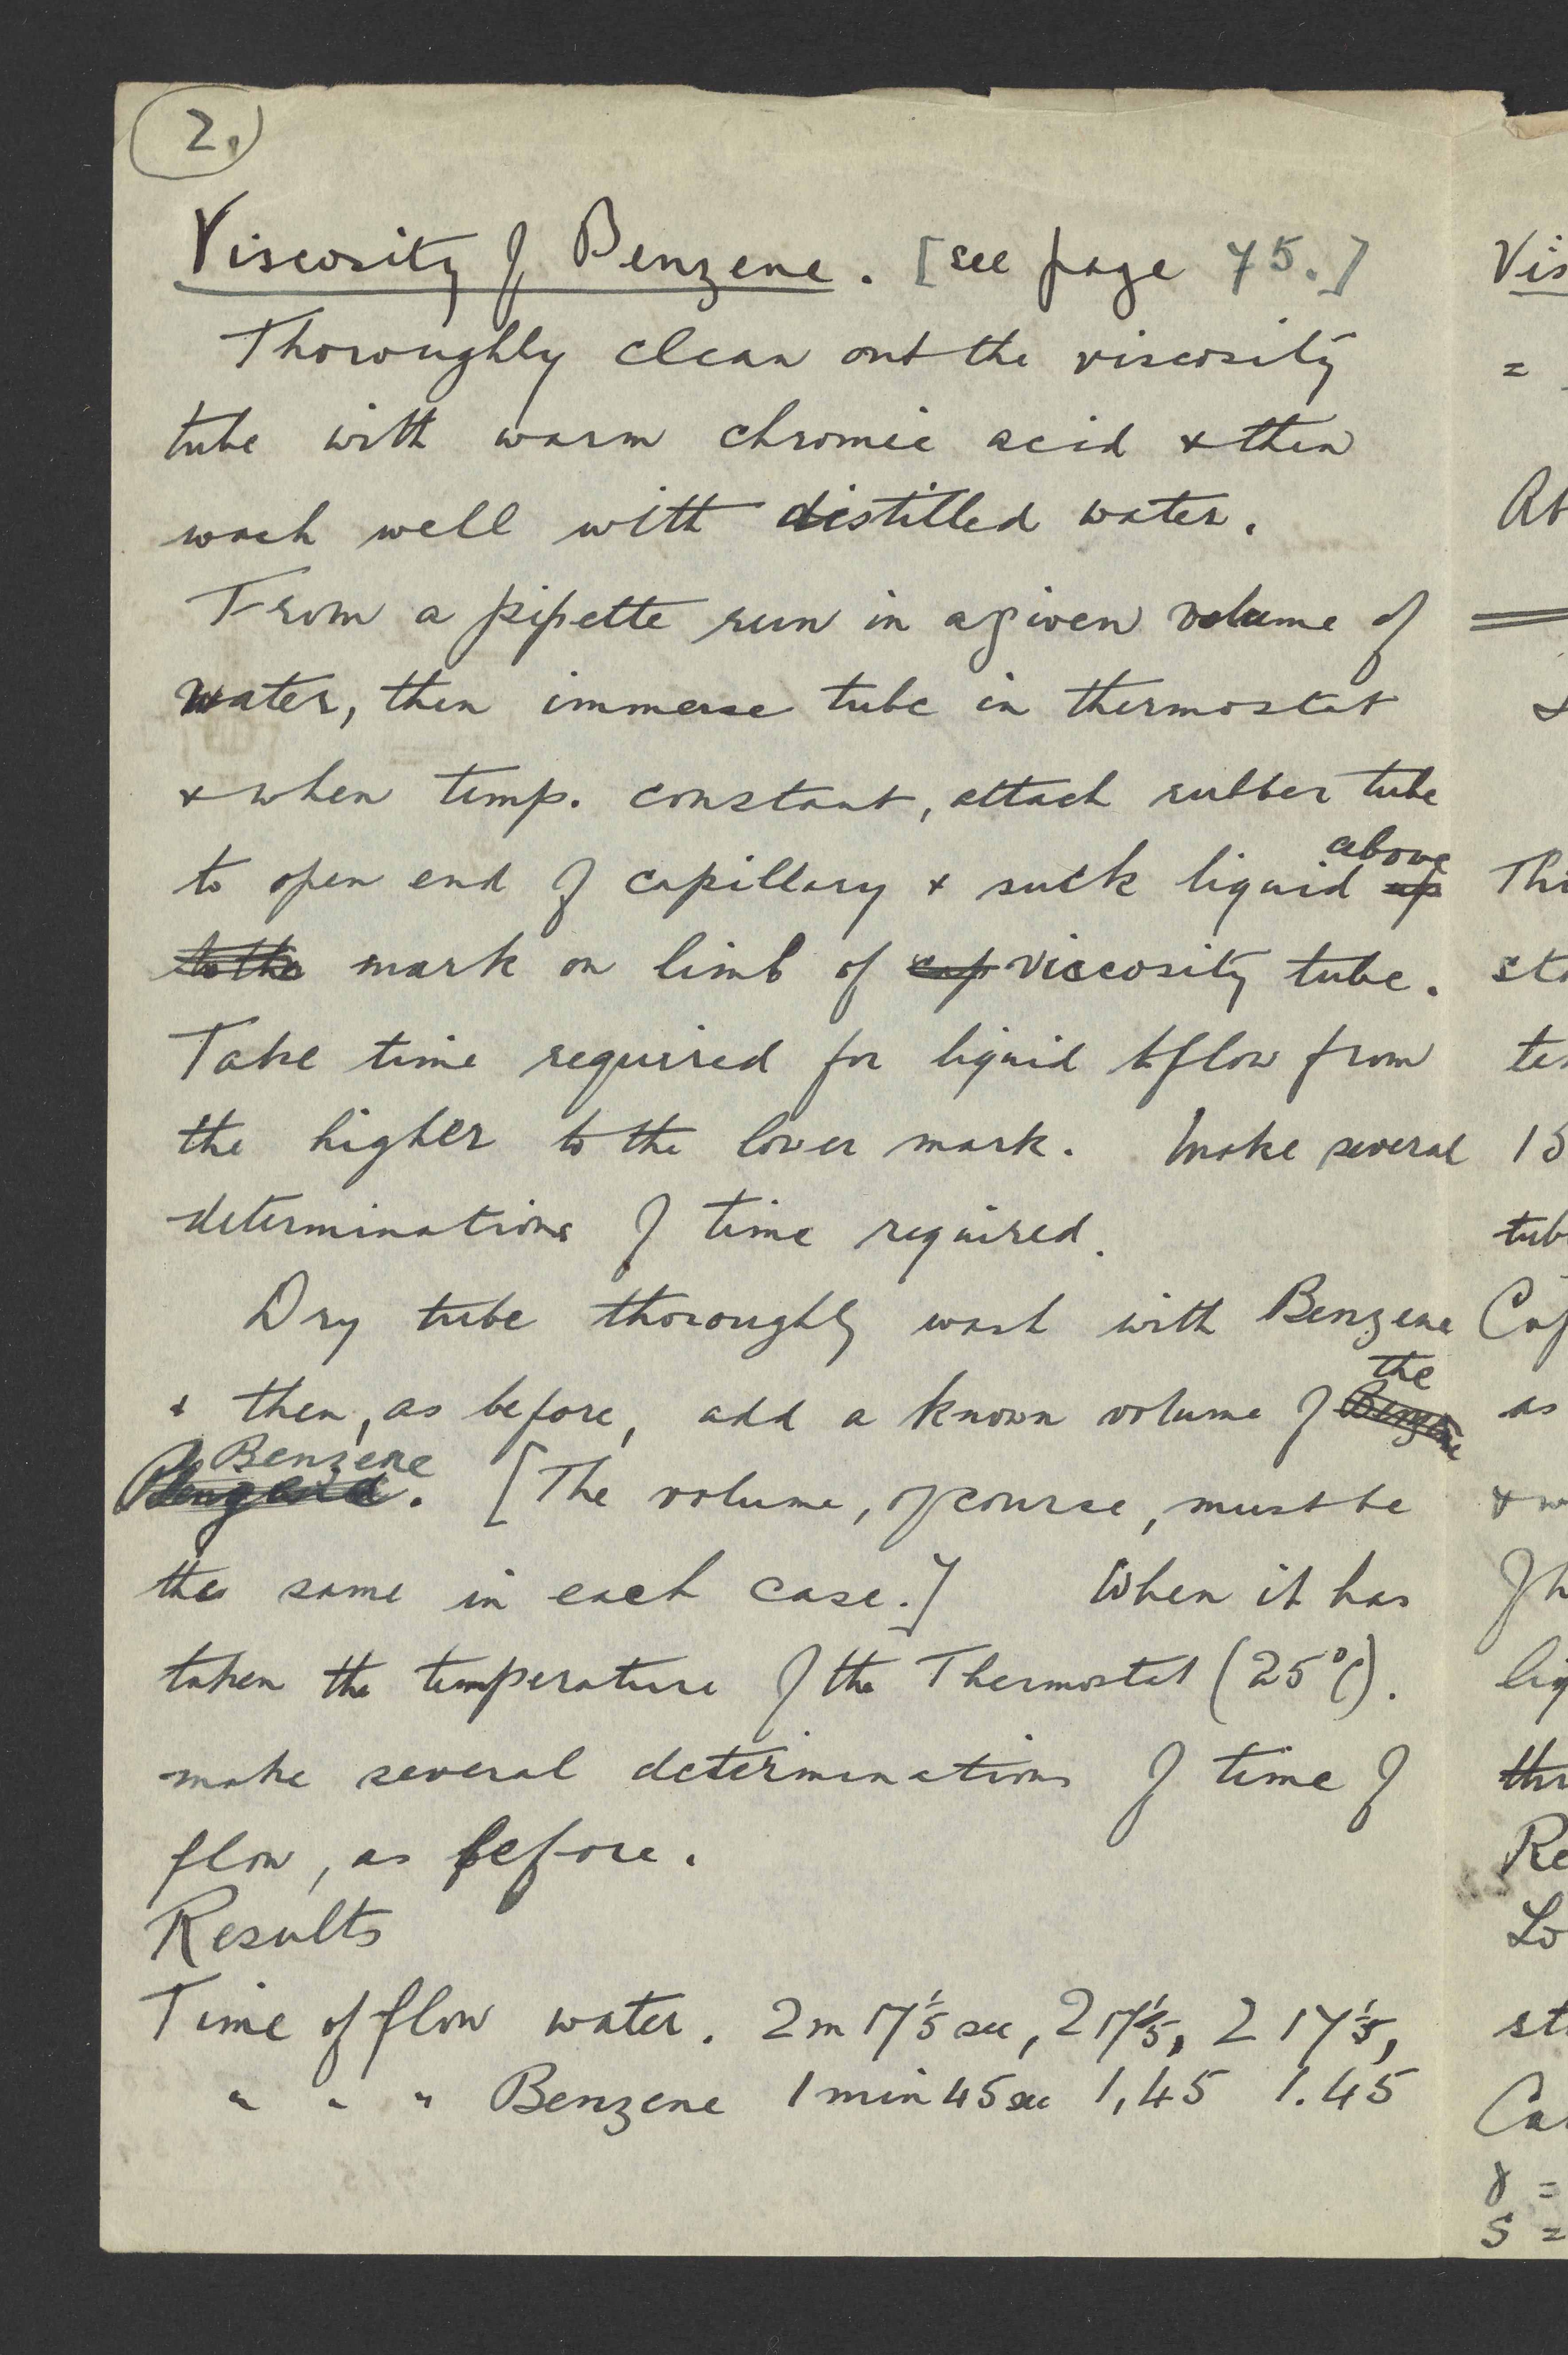 2.
Viscosity of Benzene. [see page 75.]
Thoroughly clean out the viscosity
tube with warm chromic acid & then
wash well with distilled water.
From a pipette run in a given volume of
water, then immerse tube in thermostat
& when temp. constant, attach rubber tube
above
to open end of capillary & suck liquid up
to the mark on limb of cap viscosity tube.
Take time required for liquid to flow from
the higher to the lower mark. Make several
determinations of time required.
Dry tube thoroughly wash with Benzene
the
& then, as before, add a known volume of Benzene
Benzene
. [The volume, of course, must be
the same in each case.] When it has
taken the temperature of the Thermostat (25°C).
make several determinations of time of
flow, as before.
Results
Time of flow water. 2m 17 1/5 sec, 2 17 1/5, 2 17 1/5,
" " " Benzene 1 min 45 sec 1,45 1.45
Vis
=
Ab
Thi
sta
te
15
tub
Cap
as
& w
of h
liq
thr
Re
Lo
st
Ca
γ =
S =